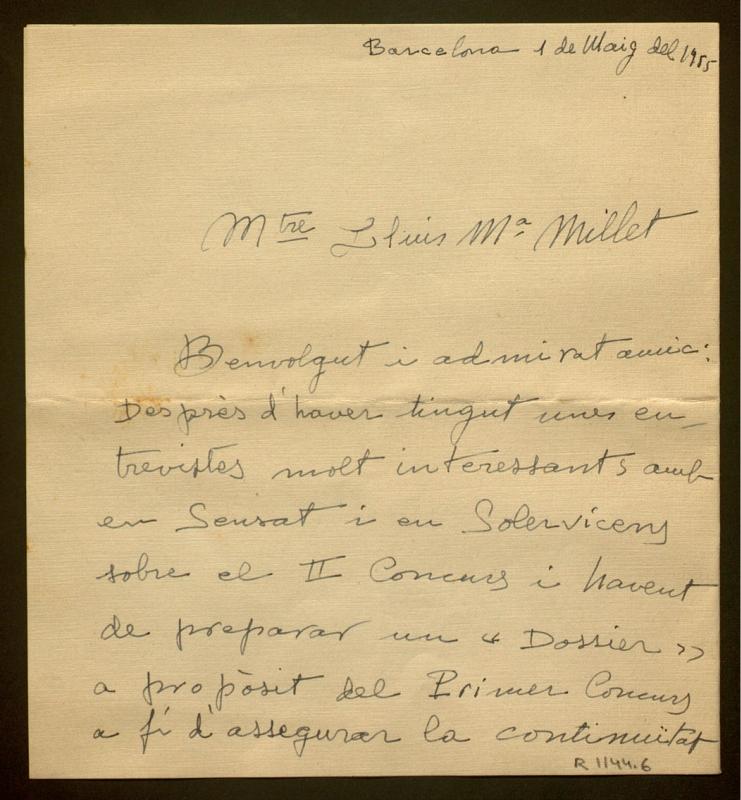 Barcelona 1 de Maig del 1955
Mtre Lluis Mª Millet
Benvolgut i admirat amic:
Desprès d'haver tingut unes en_
trevistes molt interessants amb
en Sensat i en Solervicens
sobre el II Concurs i havent
de preparar un « Dossier »
a propòsit del Primer Concurs
a fi d'assegurar la continuïtat
R 1144.6